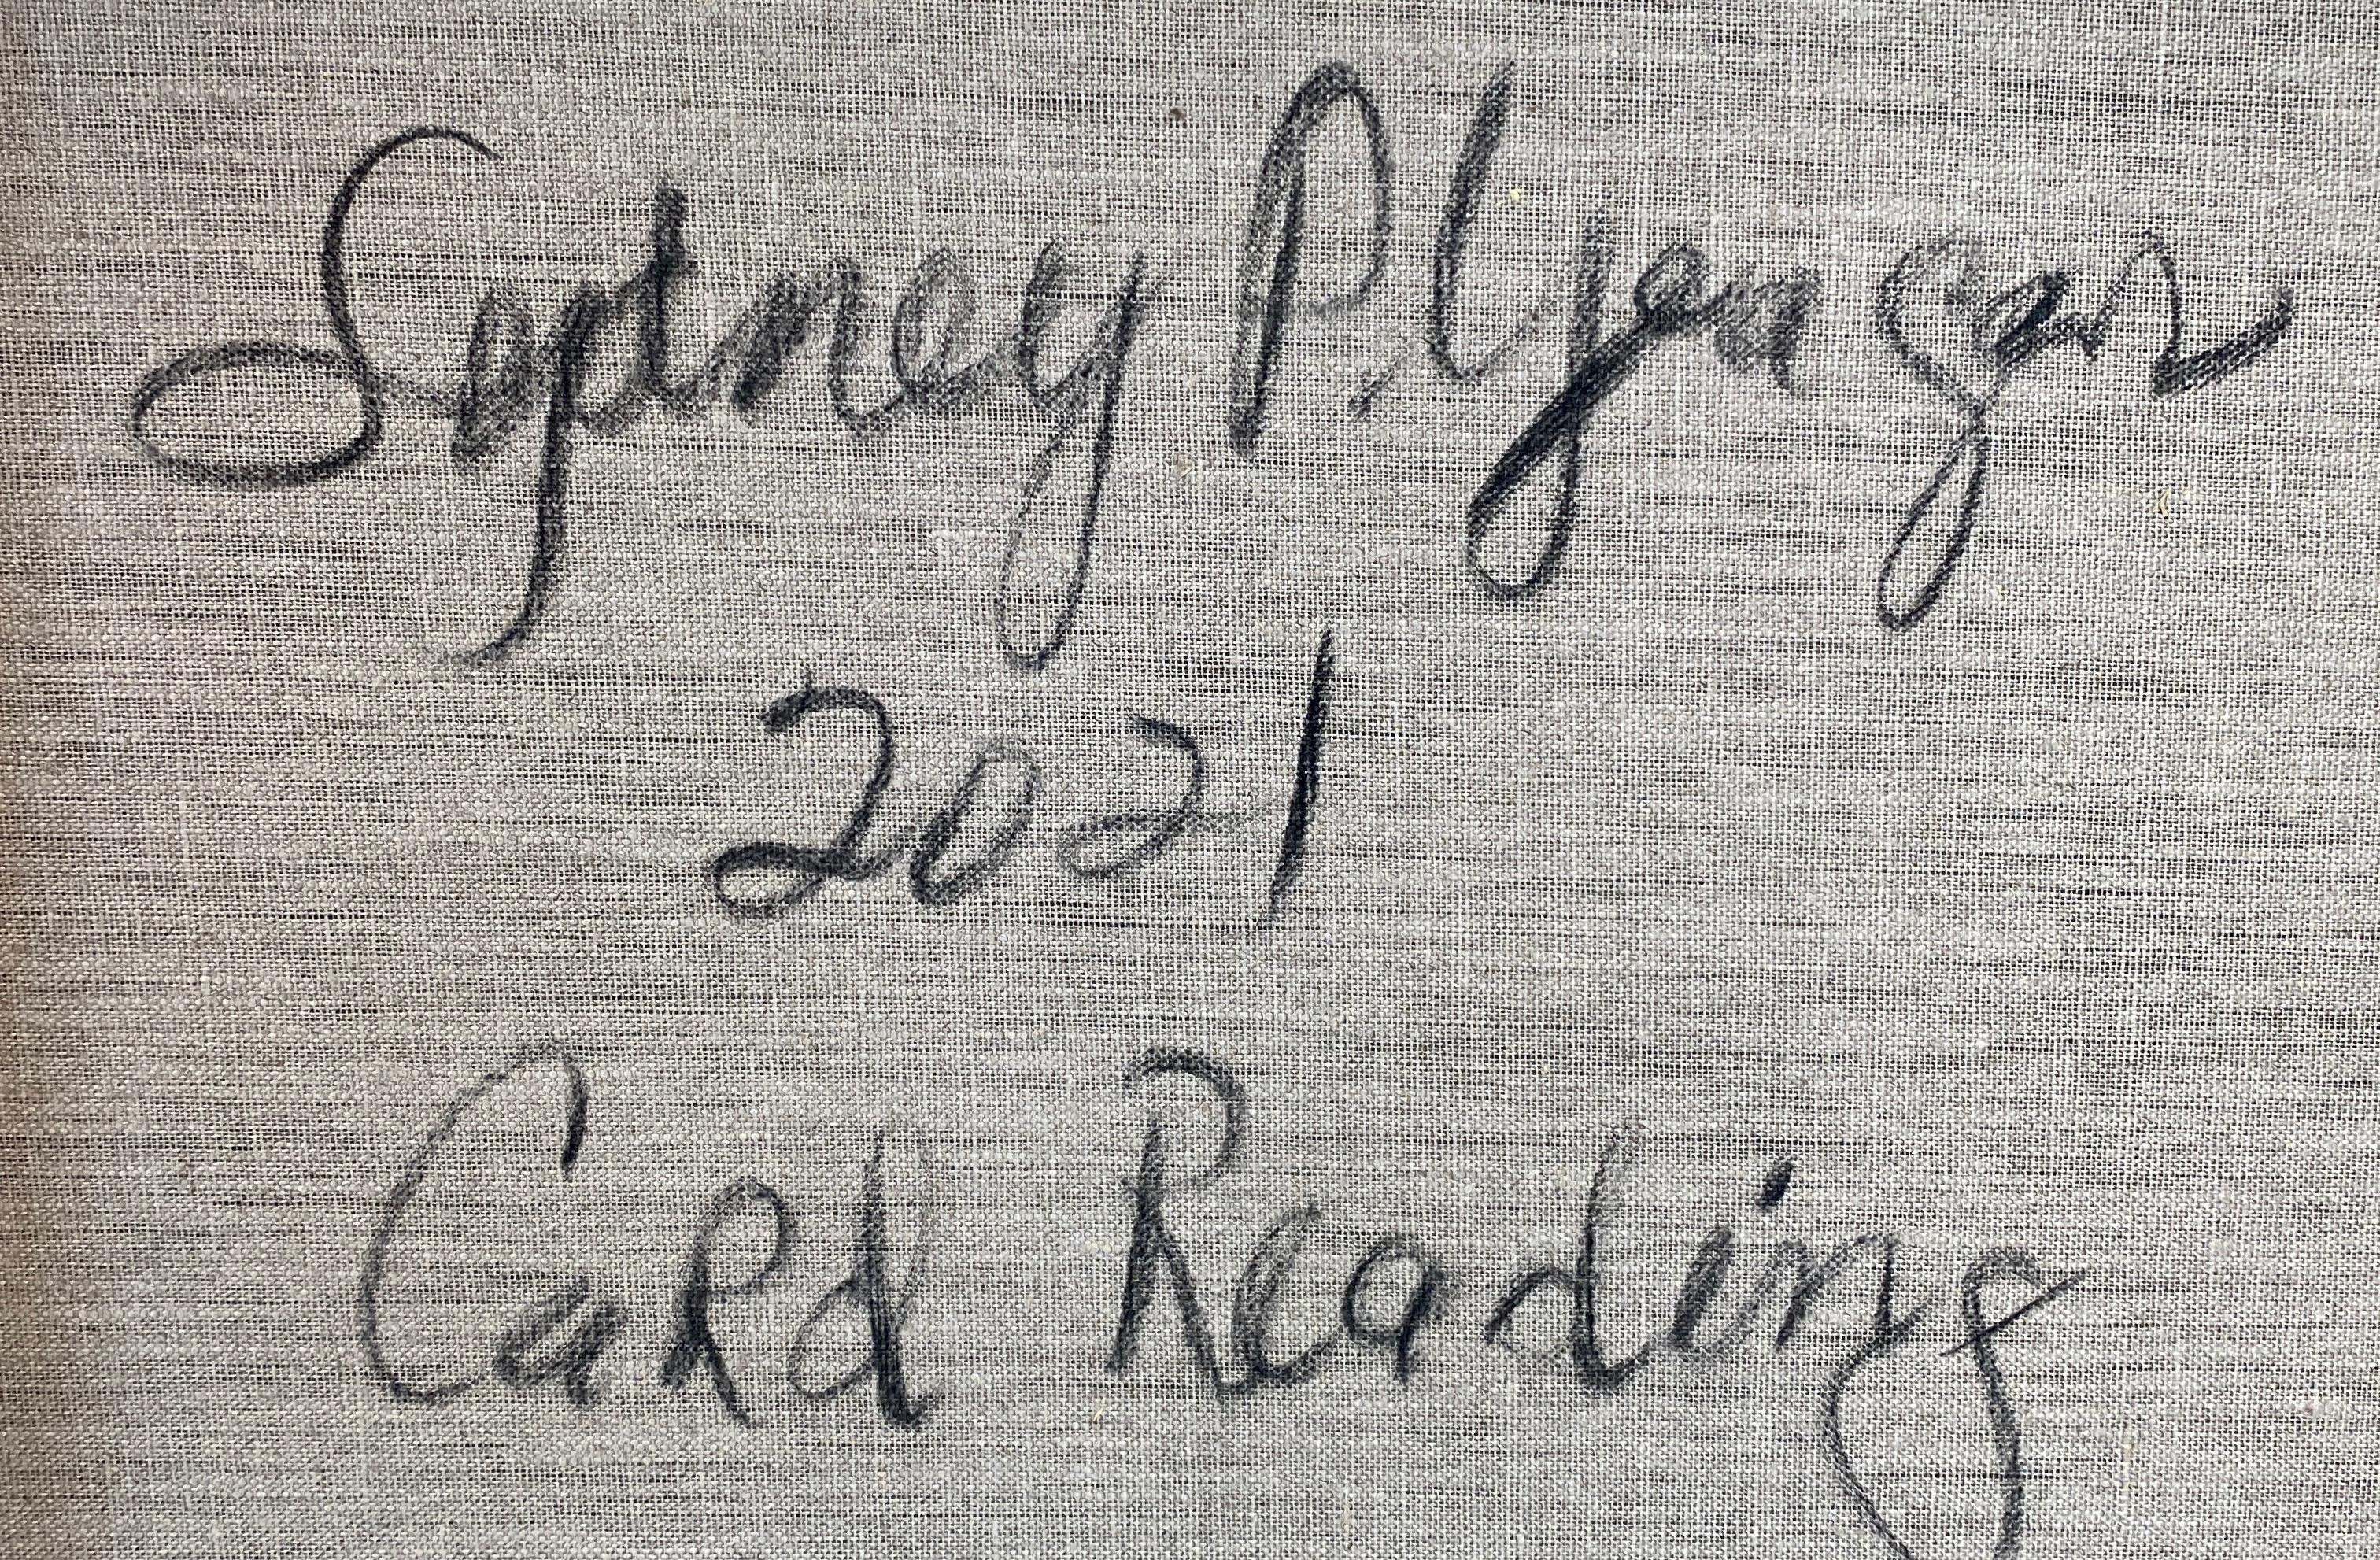 Sydney P. Iyengar
2021
Card Reading